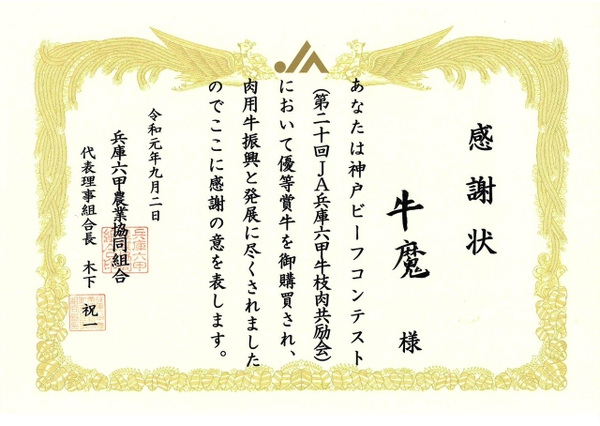 JA
感謝状
牛魔 様
あなたは神戸ビーフコンテスト
(第二十回JA兵庫六甲牛枝肉共励会)
において優等賞牛を御購買され、
肉用牛振興と発展に尽くされました
のでここに感謝の意を表します。
令和元年九月二日
兵庫六甲農業協同組合
代表理事組合長 木下 祝一